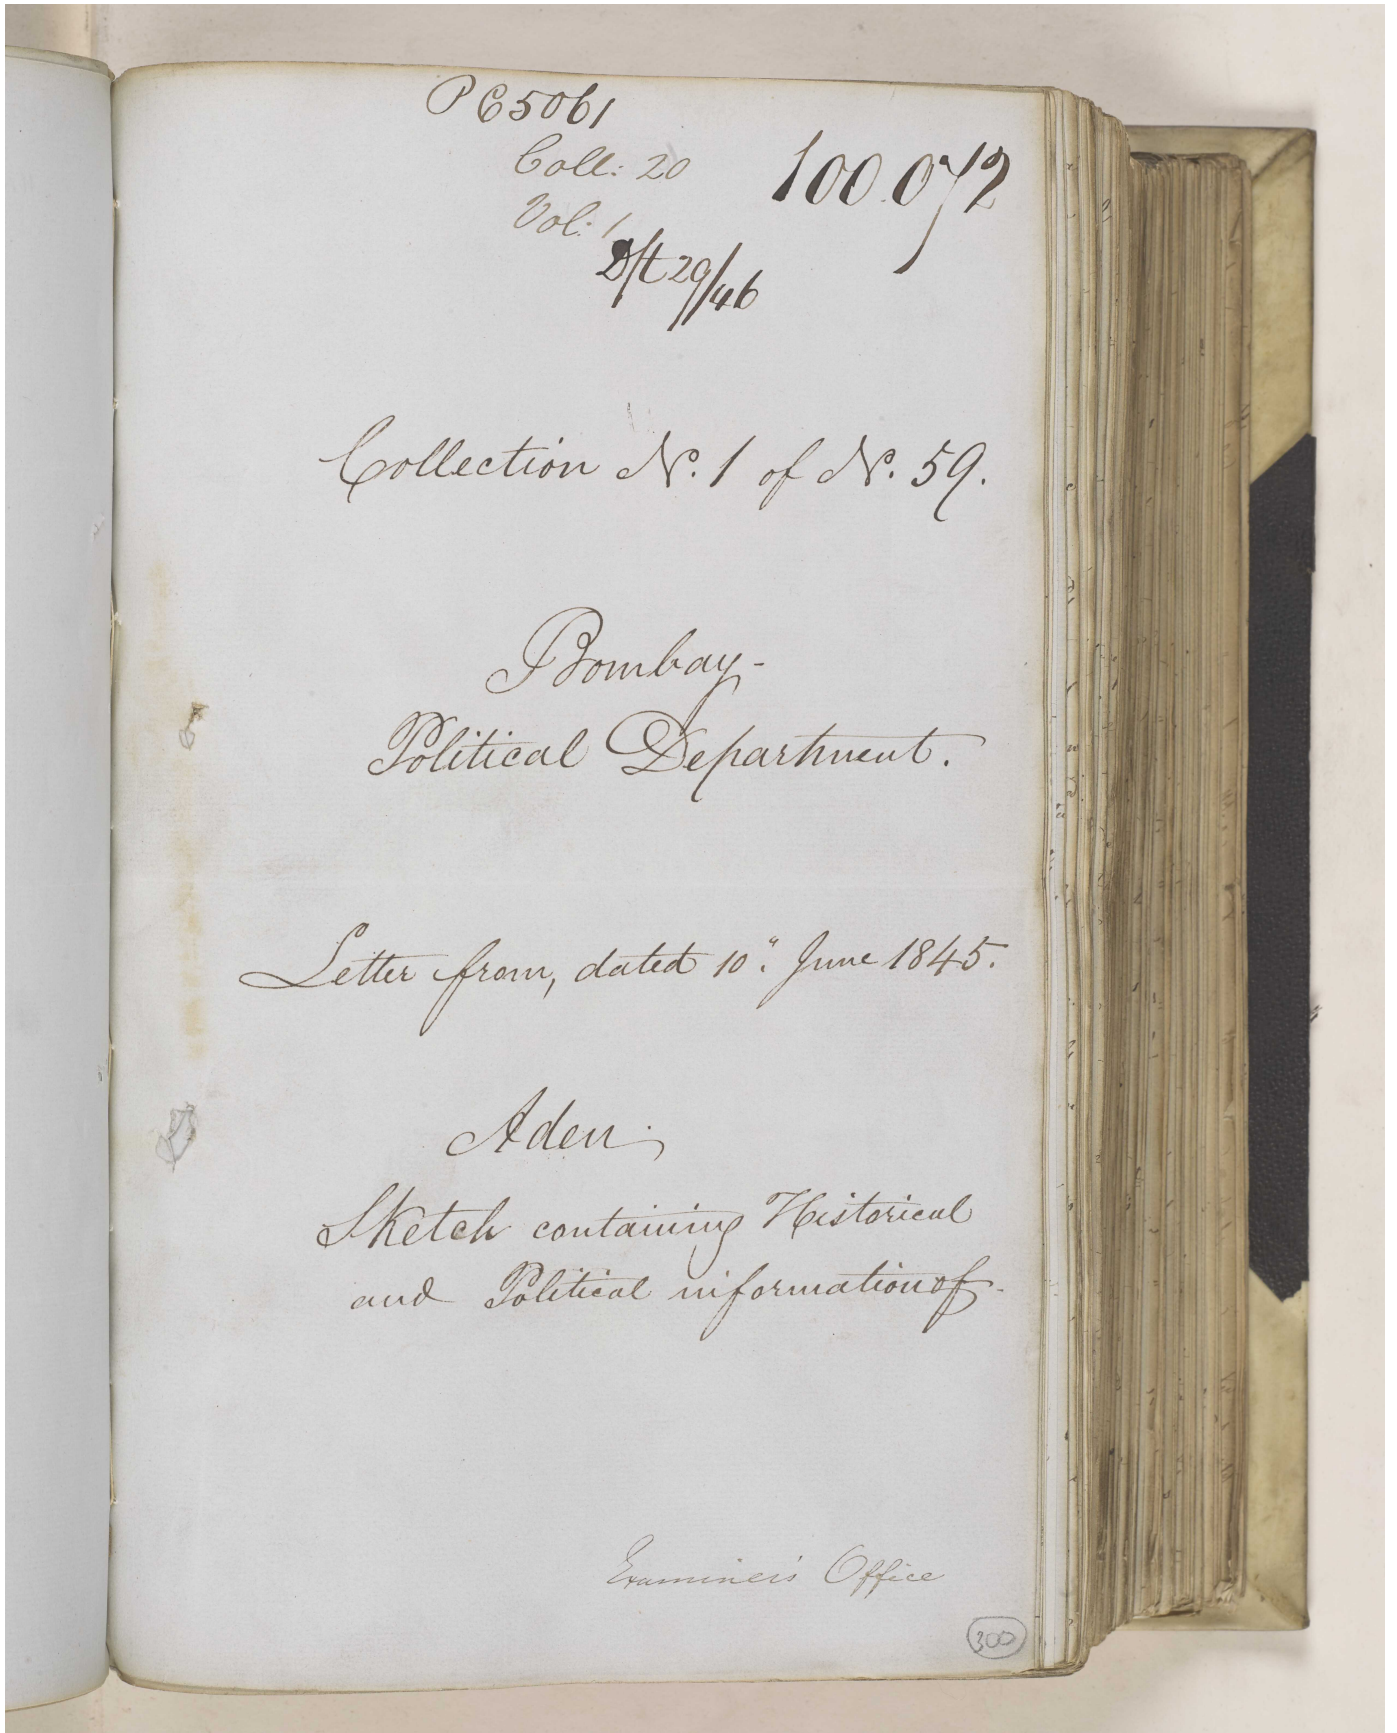 P C 5061
Coll: 20
100.072
Vol: 1
Dft 29/46
Collection No. 1 of No. 59.
Bombay-
Political Department.
Letter from, dated 10" June 1845.
Aden.
Sketch containing Historical
and Political information of-
Examiner's Office
300